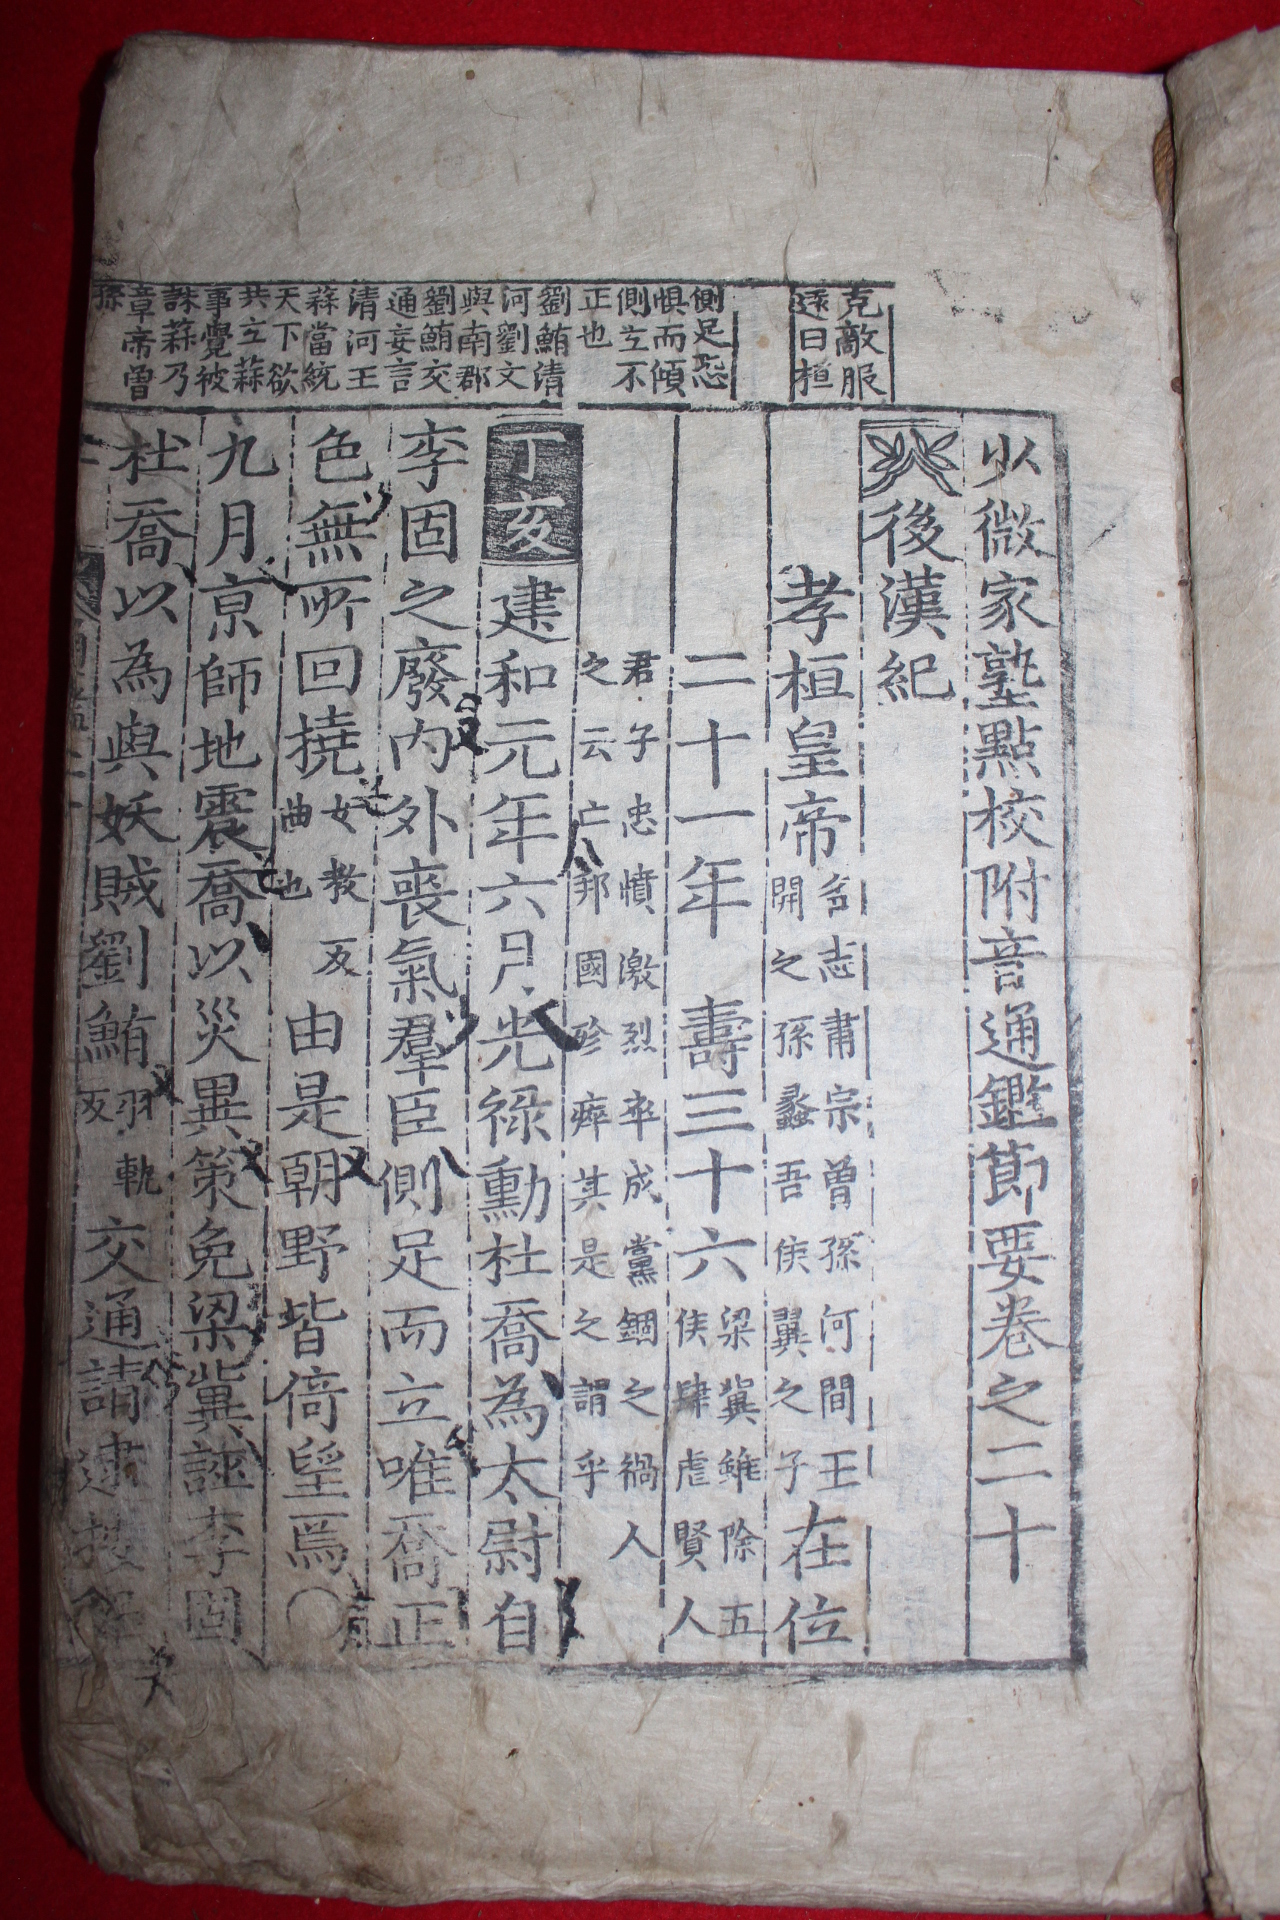 克敵服
遠日桓
側足恐
惧而傾
側立不
正也
劉鮪清
河劉文
與南郡
劉鮪交
通妄言
清河王
蒜當統
天下欲
共立蒜
事覺被
誅蒜乃
章帝曾
孫
少微家塾點校附音通鑑節要卷之二十
後漢紀
孝桓皇帝
名志肅宗曾孫河間王
開之孫蠡吾侯翼之子
在位
二十一年 壽三十六
梁冀雖除五
侯肆虐賢人
君子忠憤激烈卒成黨錮之禍人
之云亡邦國殄瘁其是之謂乎
丁亥 建和元年六月光祿勳杜喬為太尉自
李固之廢內外喪氣羣臣側足而立唯喬正
色無所回撓
女教反
曲也
由是朝野皆倚望焉〇
九月京師地震喬以災異策免梁冀誣李固
杜喬以為與妖賊劉鮪
羽軌
反
交通請逮按